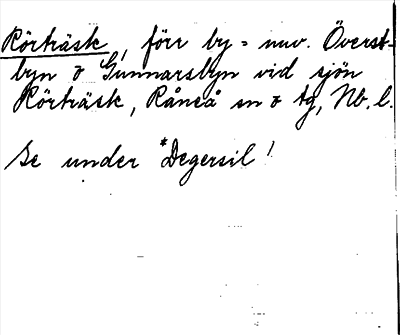 Rörträsk, förr by = nuv. Överst-
byn o Gunnarsbyn vid sjön
Rörträsk, Råneå sn o tg, Nb. l.
Se under *Degersil!